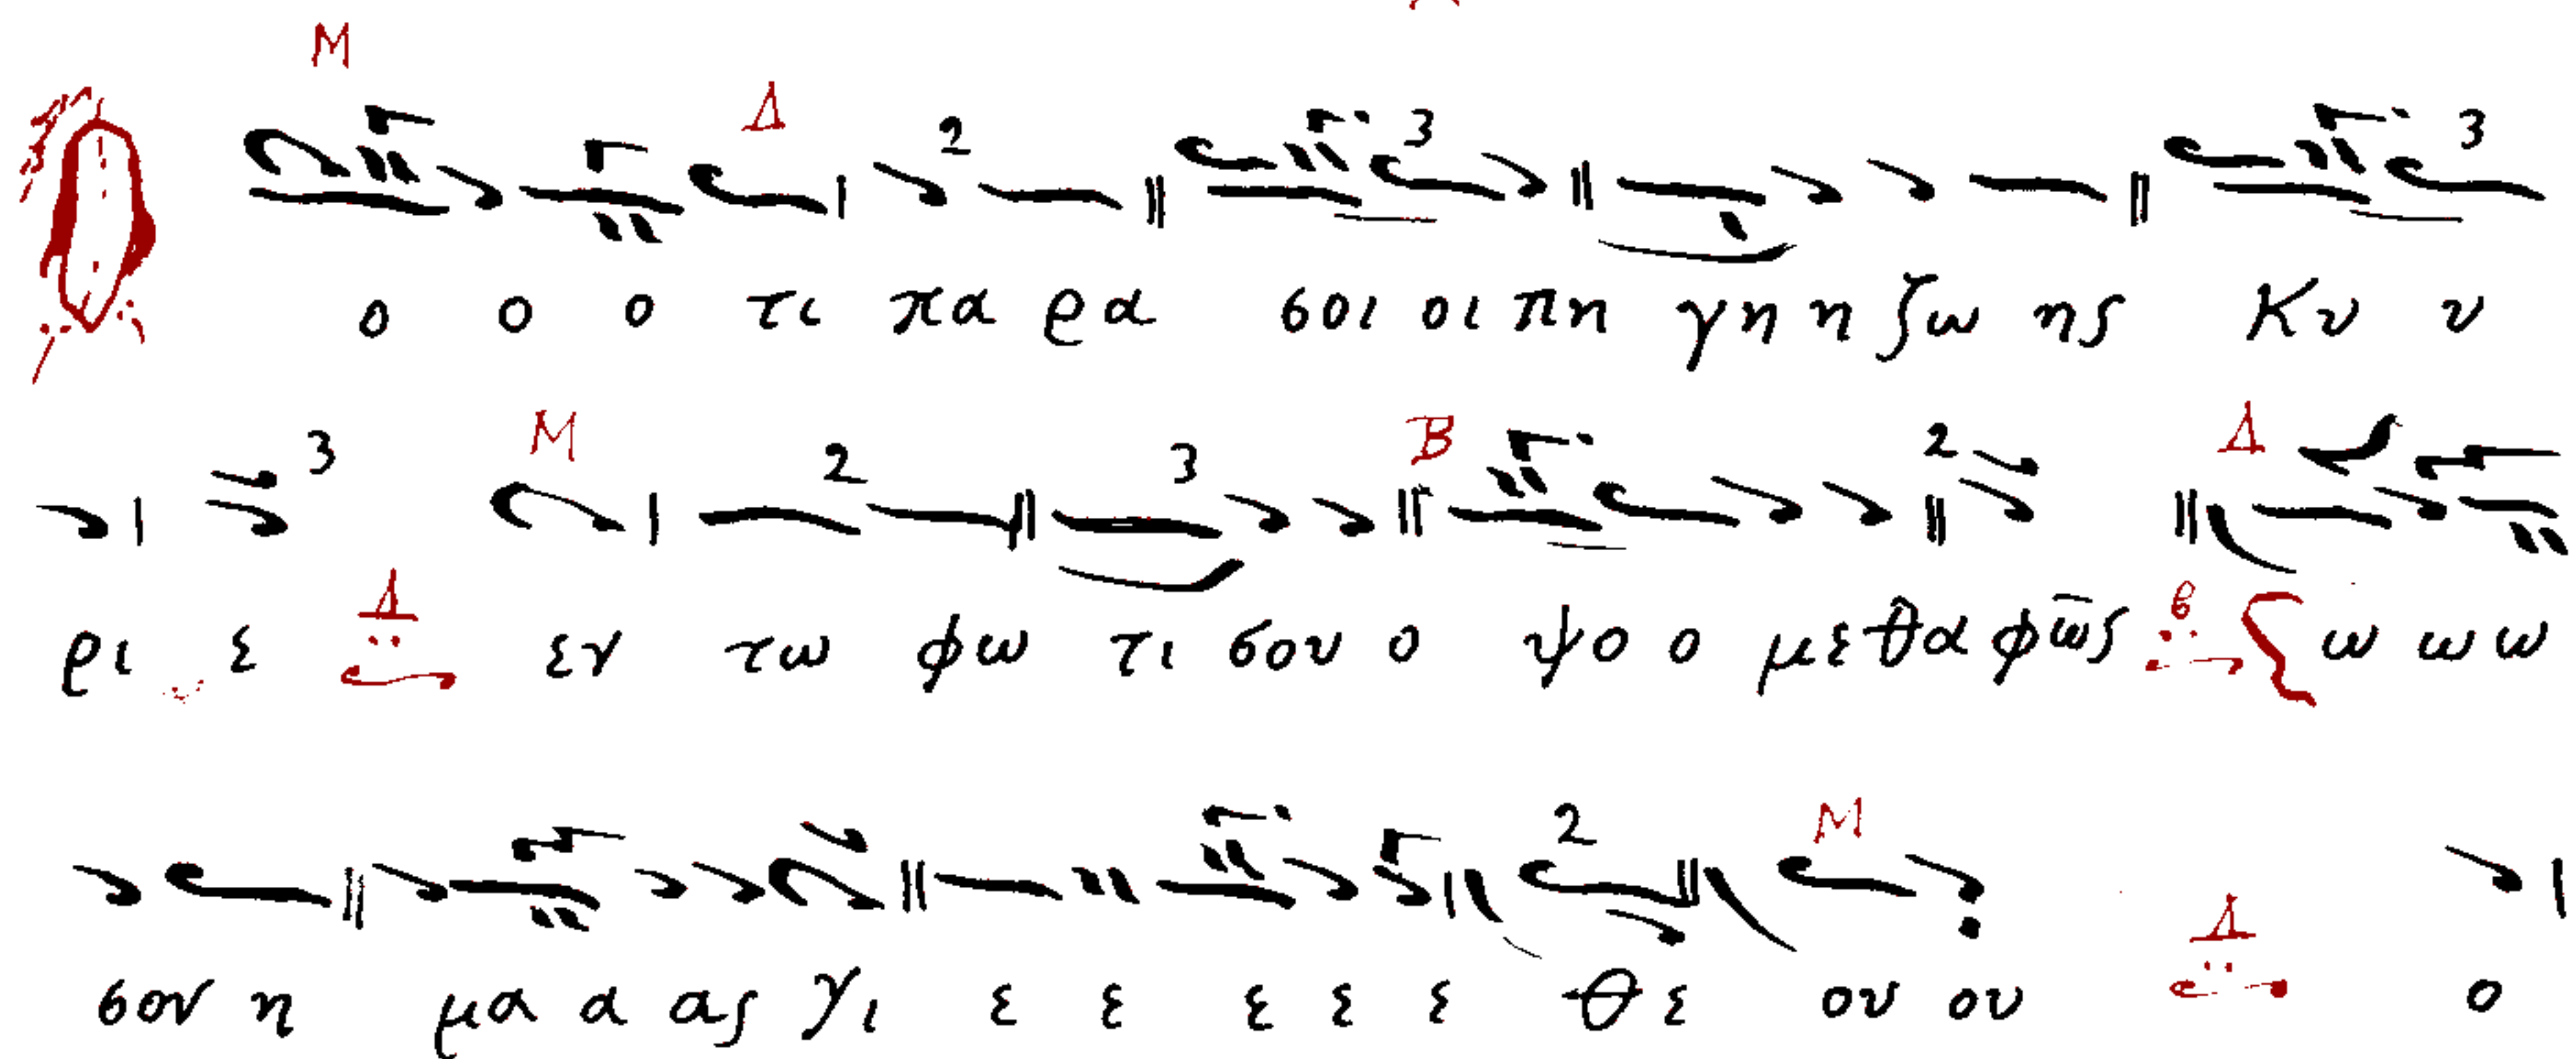 Ο ο ο ο τι πα ρα σοι οι πη γη η ζω ης Κυ υ
ρι ε εν τω φω τι σου ο ψο ο με θα φως ω ω ω
σον η μα α ας Υι ε ε ε ε ε Θε ου ου ο